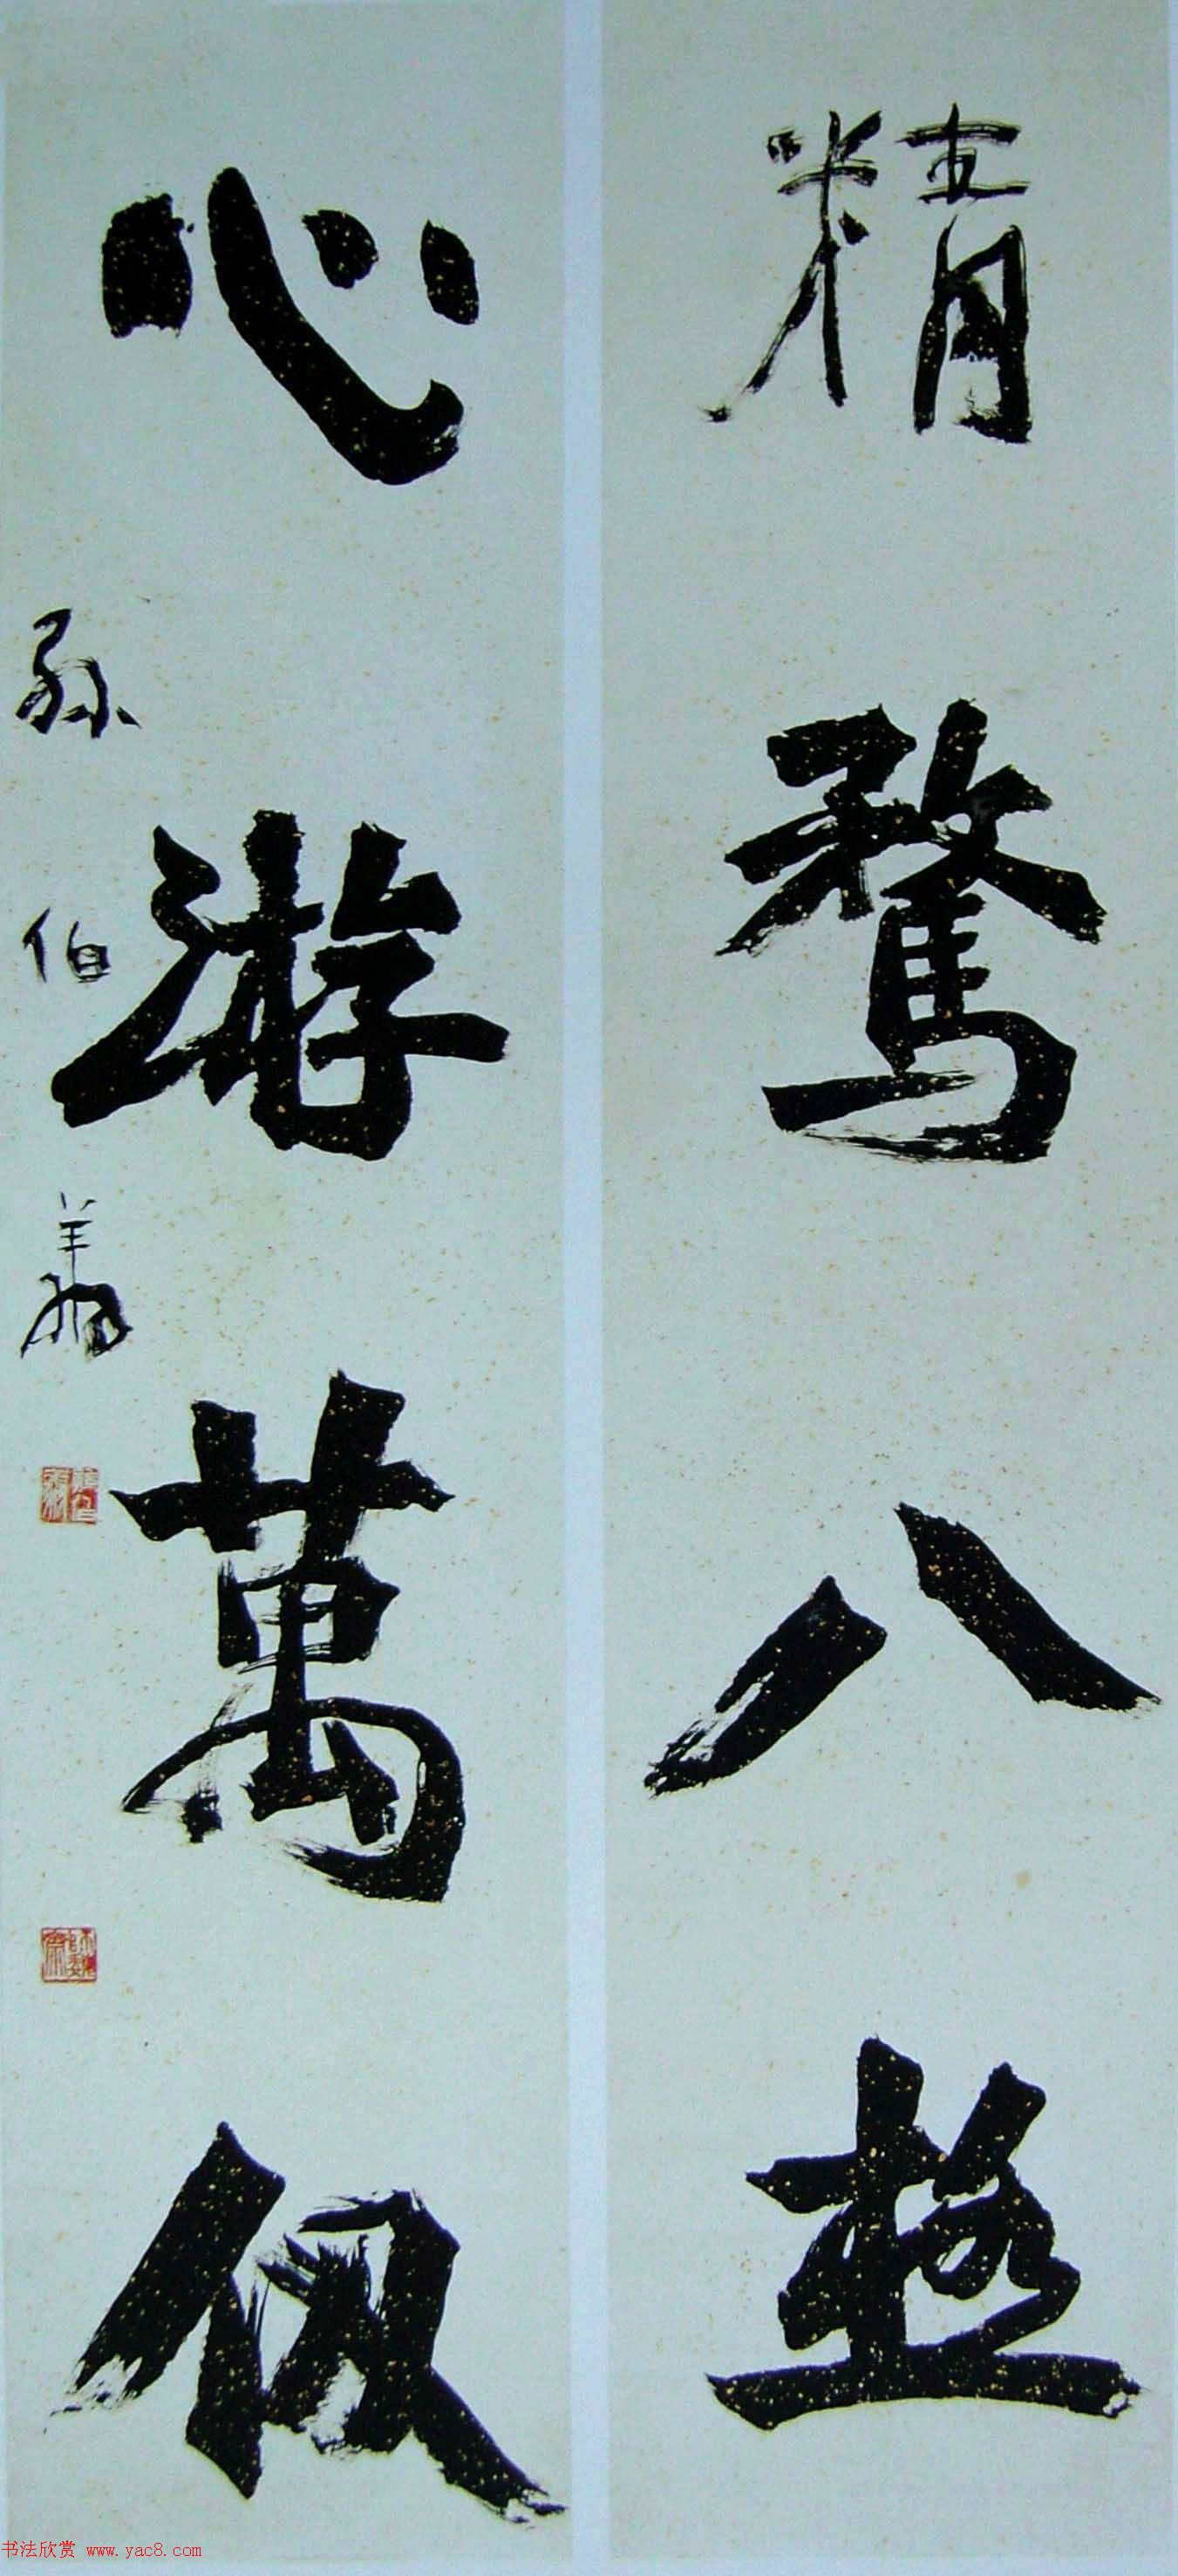 精騖八極
心游萬仞
孫伯翔
书法欣赏 www.yac8.com